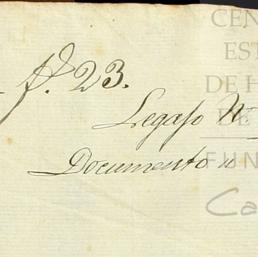 f.º 23.
Legajo N
Documento n
CEN
EST
DE H
DE
FUN
Ca